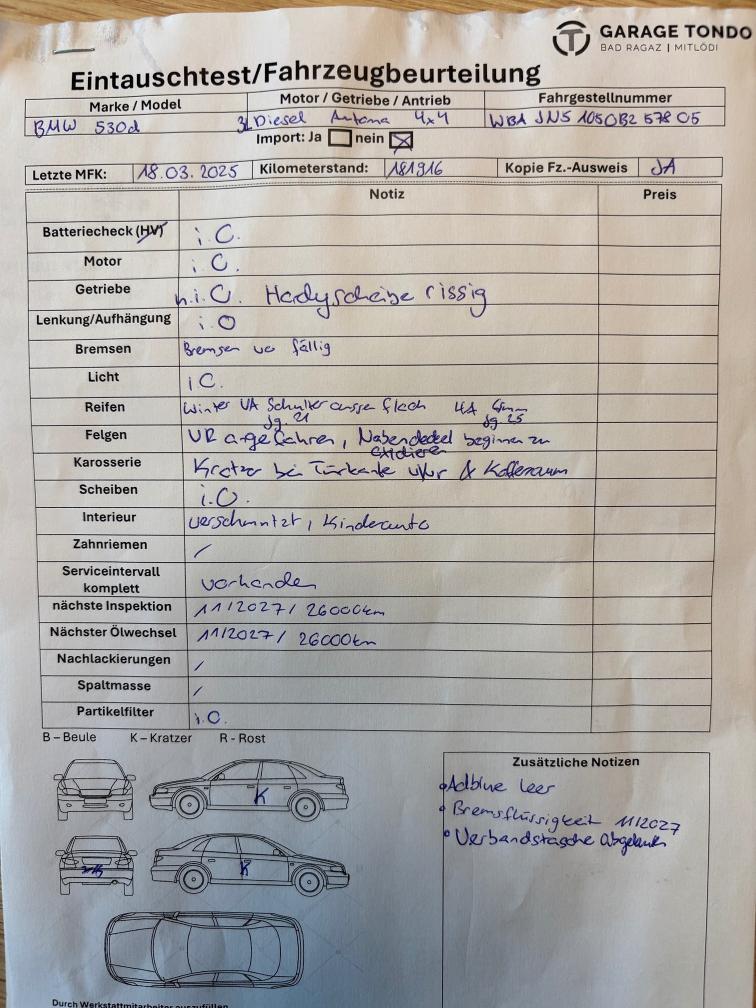 GARAGE TONDO
BAD RAGAZ | MITLÖDI
Eintauschtest/Fahrzeugbeurteilung
Marke / Model Motor / Getriebe / Antrieb Fahrgestellnummer
BMW 530d 3L Diesel Automa 4x4 WBA JN5 1050B2 578 05
Import: Ja nein
Letzte MFK: 18.03.2025 Kilometerstand: 181916 Kopie Fz.-Ausweis JA
Notiz Preis
Batteriecheck (HV) i.O.
Motor i.O.
Getriebe n.i.O. Hardyscheibe rissig
Lenkung/Aufhängung i.O
Bremsen Bremsen fällig
Licht iO.
Reifen Winter VA Schulter aussen flach HA 4mm
Jg. 21 Jg. 25
Felgen VR angefahren, Nabendeckel beginnen zu
oxidieren
Karosserie Kratzer bei Türkante & Kofferraum
Scheiben i.O.
Interieur verschmutzt, Kinderauto
Zahnriemen /
Serviceintervall
komplett vorhanden
nächste Inspektion 11/2027 / 26000km
Nächster Ölwechsel 11/2027 / 26000km
Nachlackierungen /
Spaltmasse /
Partikelfilter i.O.
B – Beule K – Kratzer R - Rost
Zusätzliche Notizen
• Adblue leer
• Bremsflüssigkeit 11/2027
• Verbandstasche abgelaufen
K
K
Durch Werkstattmitarbeiter auszufüllen